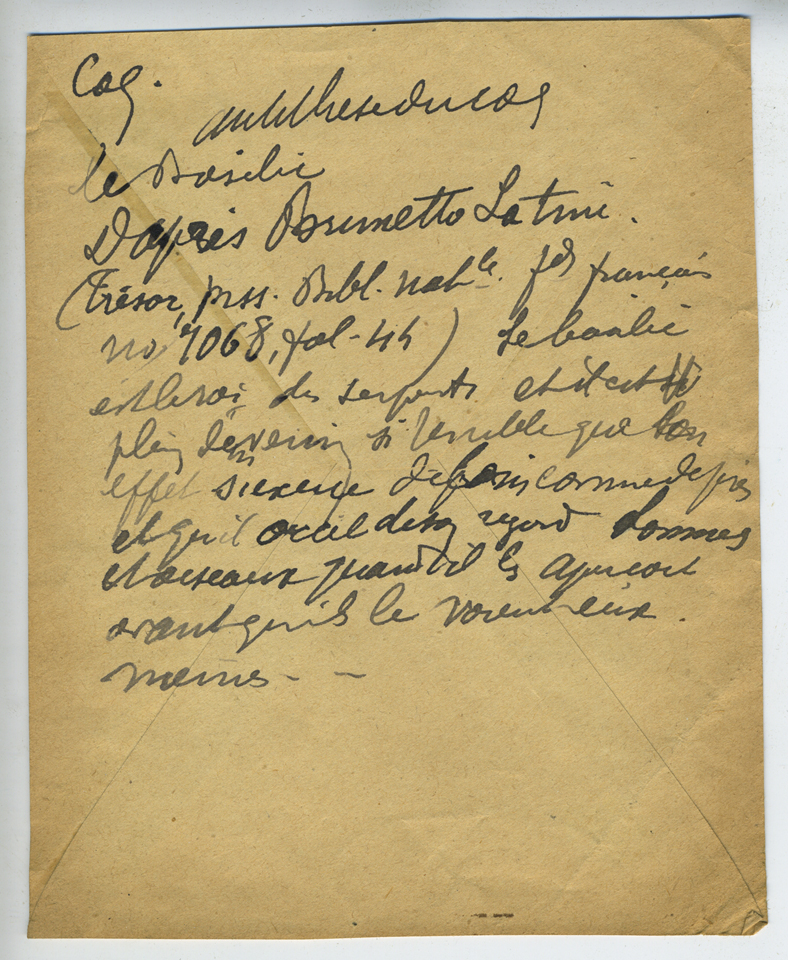 Coq.
antithese du coq
le Basilic
D'après Brunetto Latini.
(Trésor, mss. Bibl. natle. fds français
no 7068, fol. 44) Le basilic
est le roi des serpents et il est si
plein de venin si terrible que son
effet s'exerce de loin comme de près
et qu'il occit de son regard hommes
et oiseaux quand il les aperçoit
avant qu'ils le voient eux.
memes - -